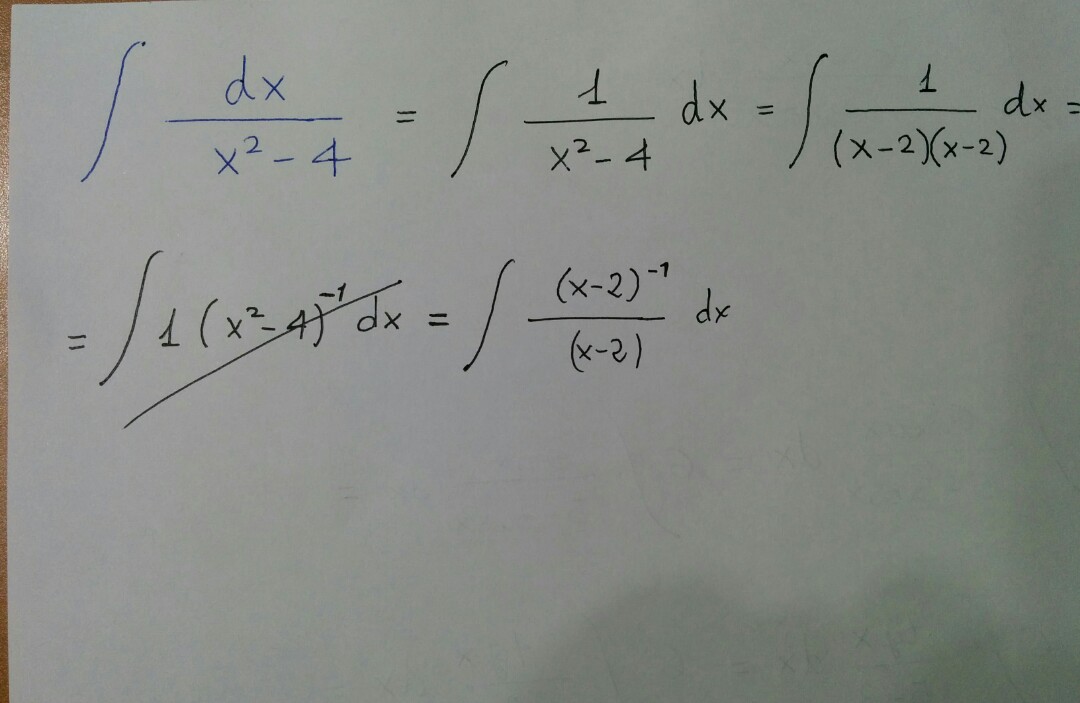 ∫ dx / (x² - 4) = ∫ 1 / (x² - 4) dx = ∫ 1 / ((x-2)(x-2)) dx =
= ∫ 1 (x² - 4)⁻¹ dx = ∫ (x-2)⁻¹ / (x-2) dx